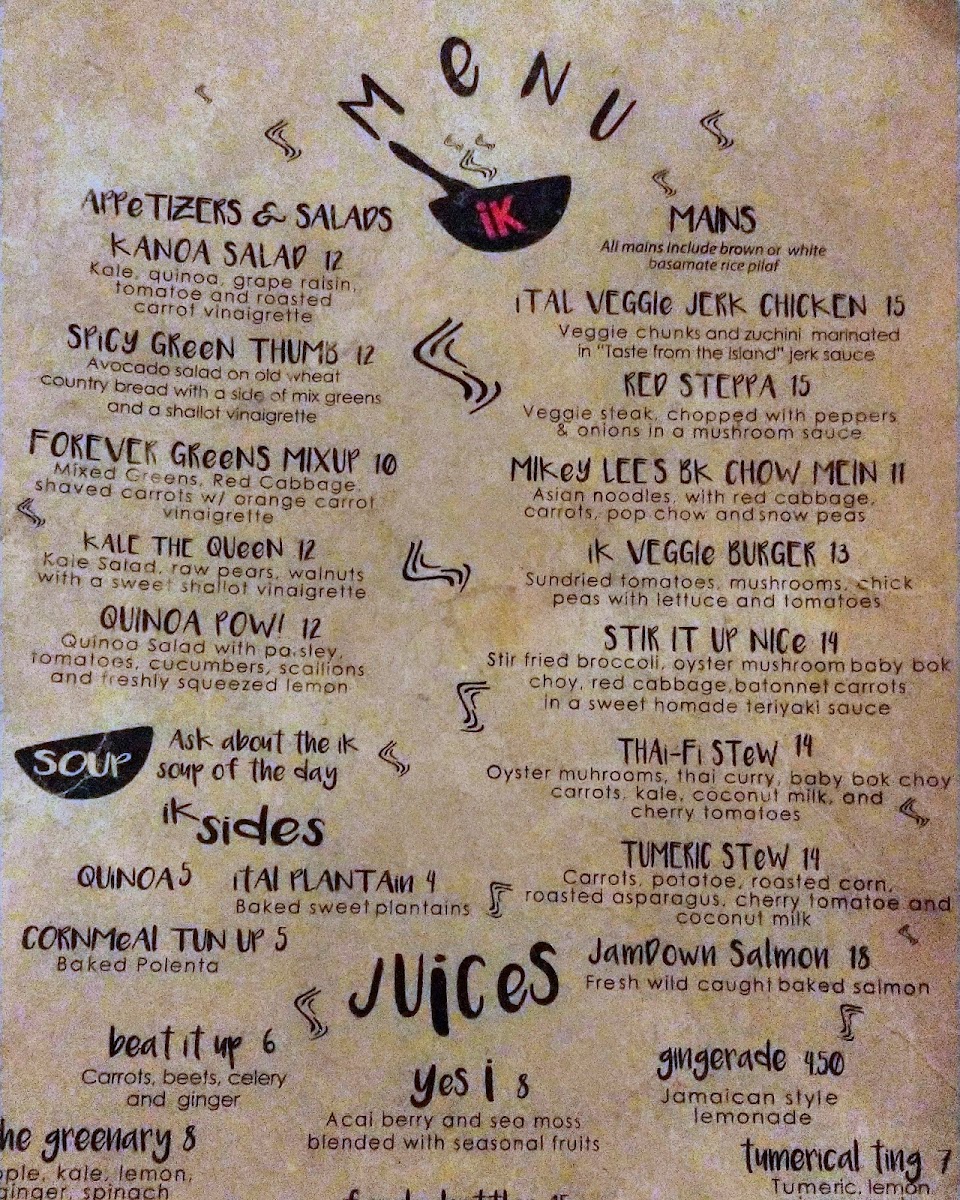 MeNU
iK
APPeTIZERS & SALADS
KANOA SALAD 12
Kale, quinoa, grape raisin,
tomatoe and roasted
carrot vinaigrette
SPiCY GReeN THUMB 12
Avocado salad on old wheat
country bread with a side of mix greens
and a shallot vinaigrette
FOREVER GReeNS MIXUP 10
Mixed Greens, Red Cabbage,
shaved carrots w/ orange carrot
vinaigrette
KALE THE QUeeN 12
Kale Salad, raw pears, walnuts
with a sweet shallot vinaigrette
QUINOA POW! 12
Quinoa Salad with paisley,
tomatoes, cucumbers, scallions
and freshly squeezed lemon
SOUP
Ask about the ik
soup of the day
iK sides
QUiNOA 5
iTAl PLANTAin 4
Baked sweet plantains
CORNMeAl TUN UP 5
Baked Polenta
MAINS
All mains include brown or white
basamate rice pilaf
iTAL VEGGIe JERK CHICKEN 15
Veggie chunks and zuchini marinated
in "Taste from the Island" jerk sauce
RED STEPPA 15
Veggie steak, chopped with peppers
& onions in a mushroom sauce
MIKey LEES BK CHOW MEIN 11
Asian noodles, with red cabbage,
carrots, pop chow and snow peas
iK VEGGIe BURGER 13
Sundried tomatoes, mushrooms, chick
peas with lettuce and tomatoes
STIR IT UP NICe 14
Stir fried broccoli, oyster mushroom baby bok
choy, red cabbage,batonnet carrots
in a sweet homade teriyaki sauce
THAi-Fi STeW 14
Oyster muhrooms, thai curry, baby bok choy
carrots, kale, coconut milk, and
cherry tomatoes
TUMERIC STeW 14
Carrots, potatoe, roasted corn,
roasted asparagus, cherry tomatoe and
coconut milk
JamDown Salmon 18
Fresh wild caught baked salmon
JUiCeS
beat it up 6
Carrots, beets, celery
and ginger
he greenary 8
ple, kale, lemon,
ginger, spinach
yes i 8
Acai berry and sea moss
blended with seasonal fruits
gingerade 4.50
Jamaican style
lemonade
tumerical ting 7
Tumeric, lemon,